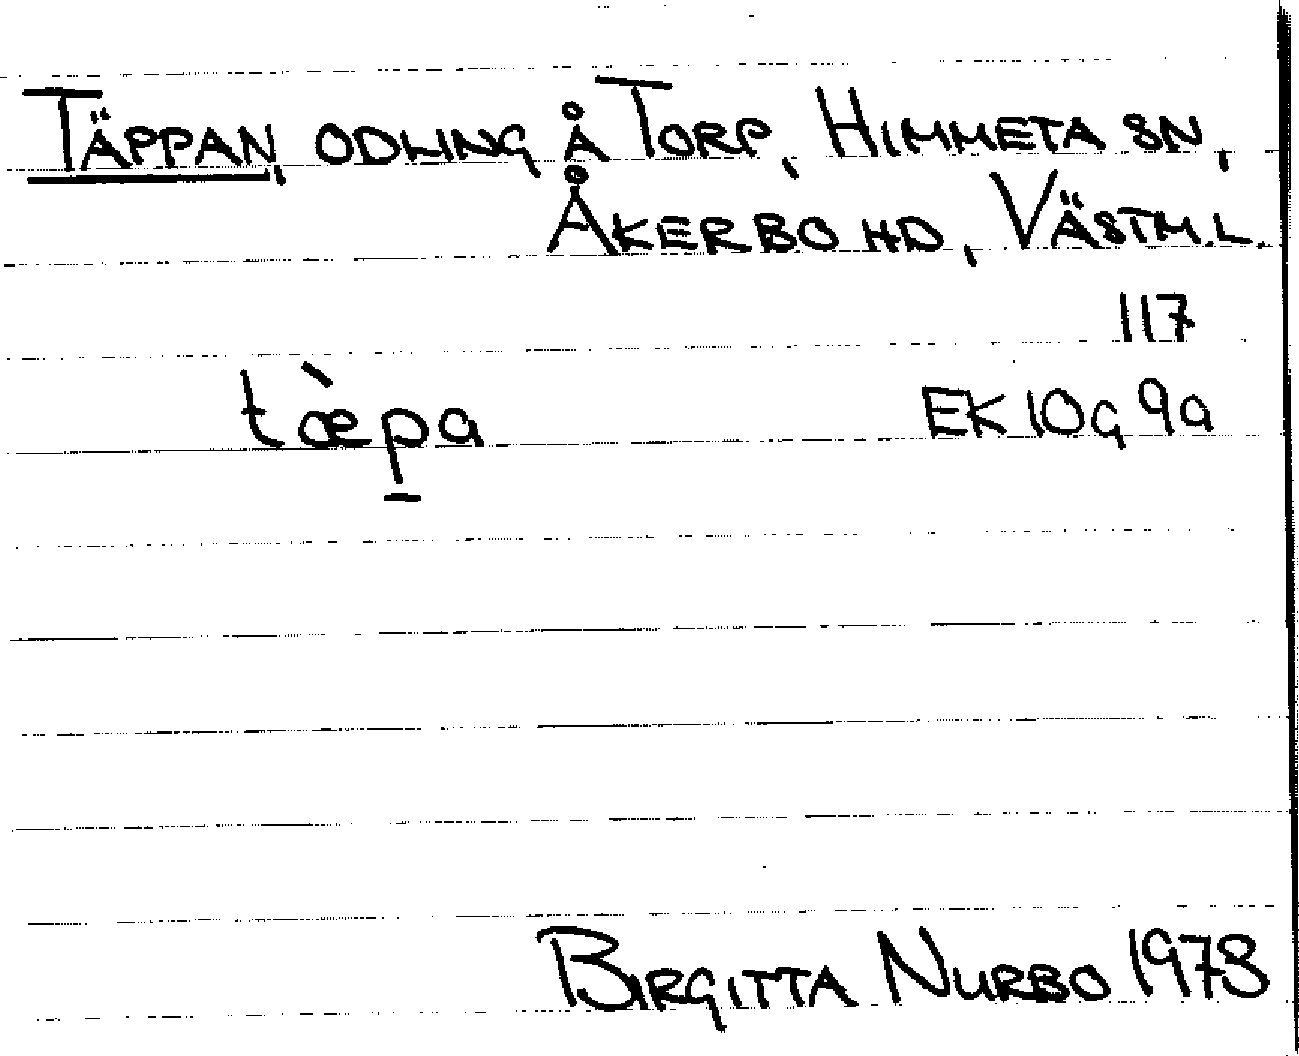 TÄPPAN, ODLING Å TORP, HIMMETA SN,
ÅKERBO HD, VÄSTM.L.
117
tæ̀pa
EK 10G 9a
BIRGITTA NURBO 1978